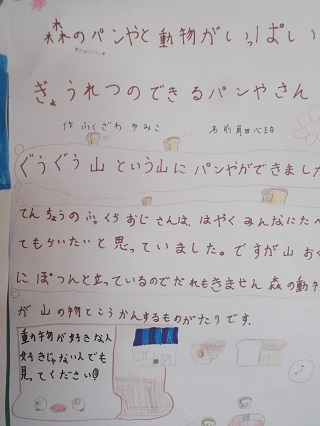 森のパンやと動物がいっぱい
ぎょうれつのできるパンやさん
作 ふくざわ ゆみこ 名前
ぐうぐう山という山にパンやができました
てんちょうのふっくらおじさんは、はやくみんなにたべ
てもらいたいと思っていました。ですが山おく
にぽつんと立っているのでだれもきません 森の動物
が山の物とこうかんするものがたりです。
動物が好きな人
好きじゃない人でも
見てください